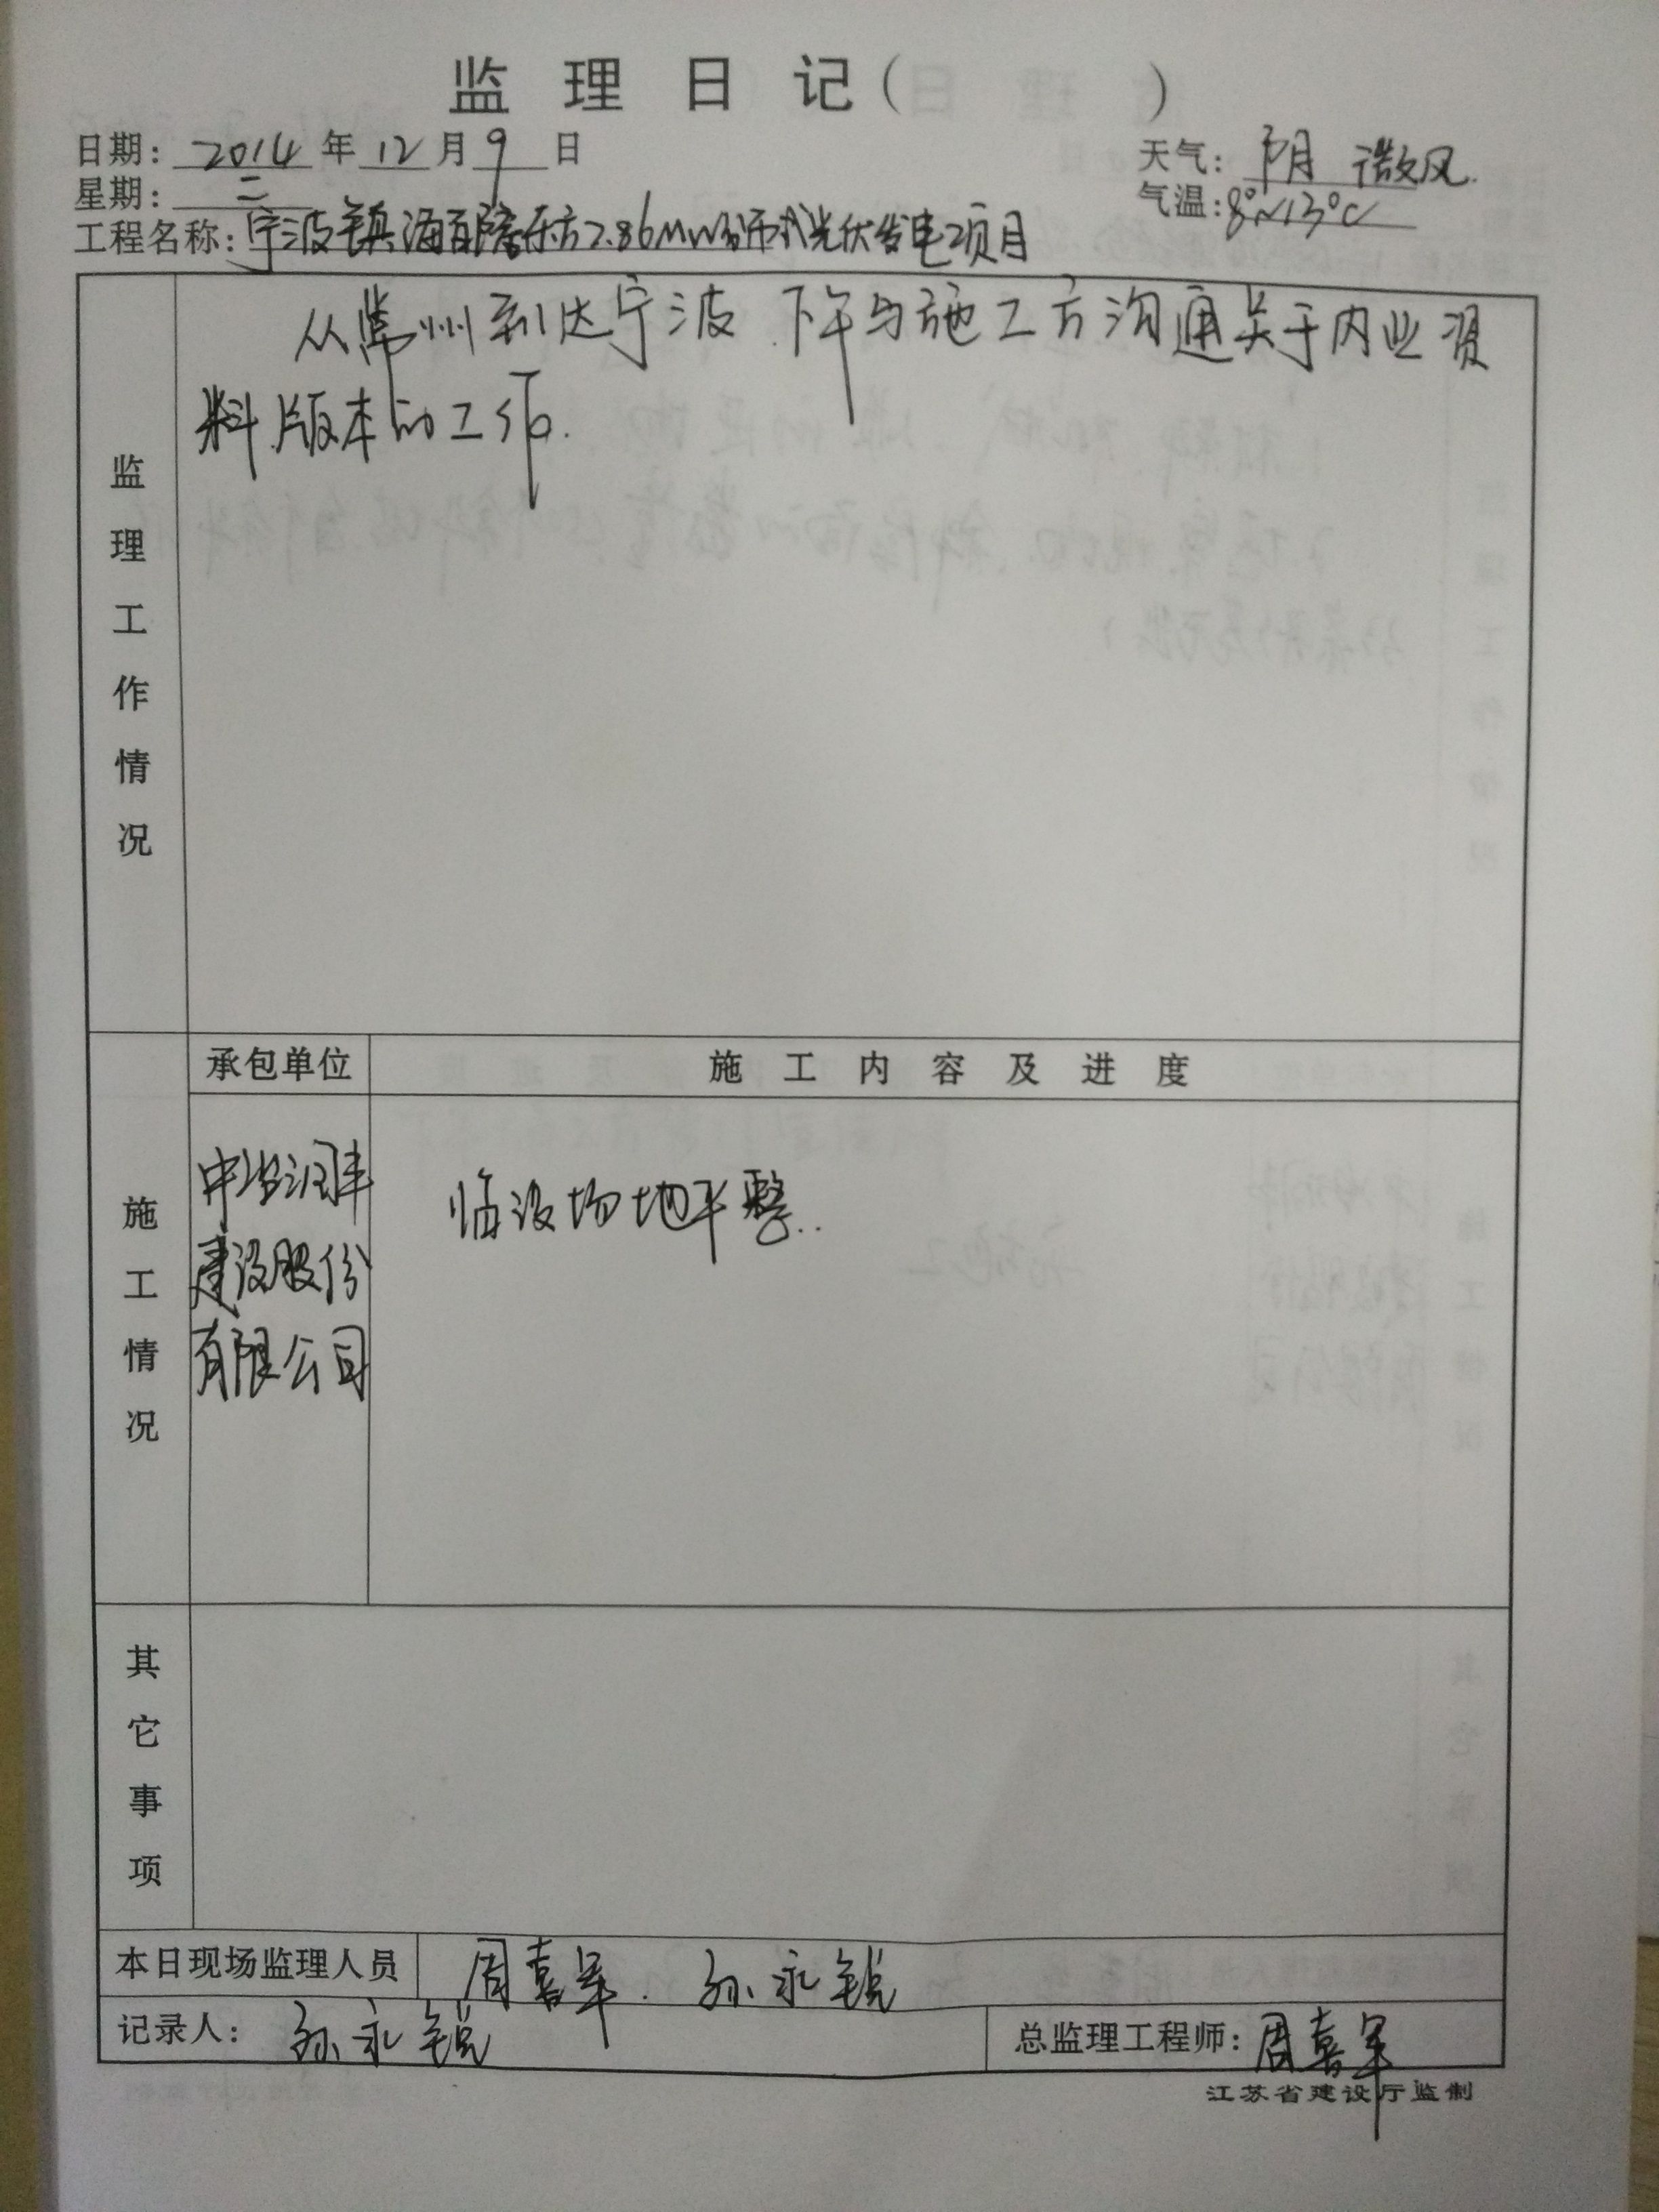 监理日记( )
日期: 2014 年 12 月 9 日
天气: 阴 微风.
星期: 二
气温: 8°~13°C
工程名称: 宁波镇海百隆东方2.86MW分布式光伏发电项目
监理工作情况
从常州到达宁波.下午与施工方沟通关于内业资
料版本的工作.
承包单位
施工内容及进度
施工情况
润丰
建设股份
有限公司
临设场地平整..
其它事项
本日现场监理人员 周喜军. 孙永锐
记录人: 孙永锐
总监理工程师: 周喜军
江苏省建设厅监制